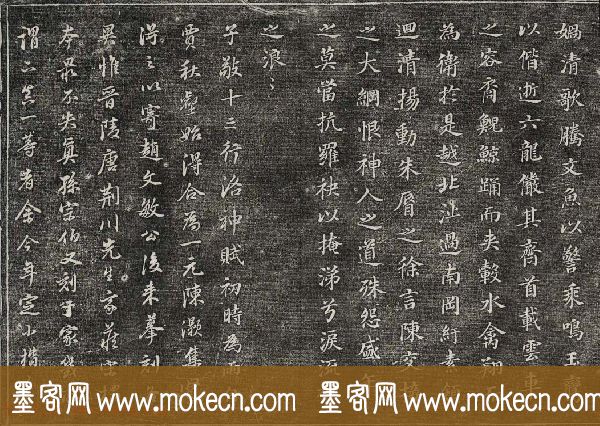 娲清歌騰文魚以警乘鳴玉鸞
以偕逝六龍儼其齊首載雲車
之容裔鯨鯢踊而夾轂水禽翔
為衛於是越北沚過南岡紆素領
迴清揚動朱脣之徐言陳交接
之大綱恨神人之道殊怨盛
之莫當抗羅袂以掩涕兮淚流
之浪〻
子敬十三行洛神賦初時為
賈秋壑始得合為一元陳灝集
得之以寄趙文敏公後來摹刻
畢惟晉陵唐荊川先生家藏宋搨
本最不失真孫宗伯又刻于家
謂下真一等者余今年定小楷
墨客网 www.mokecn.com 墨客网 www.mokecn.com